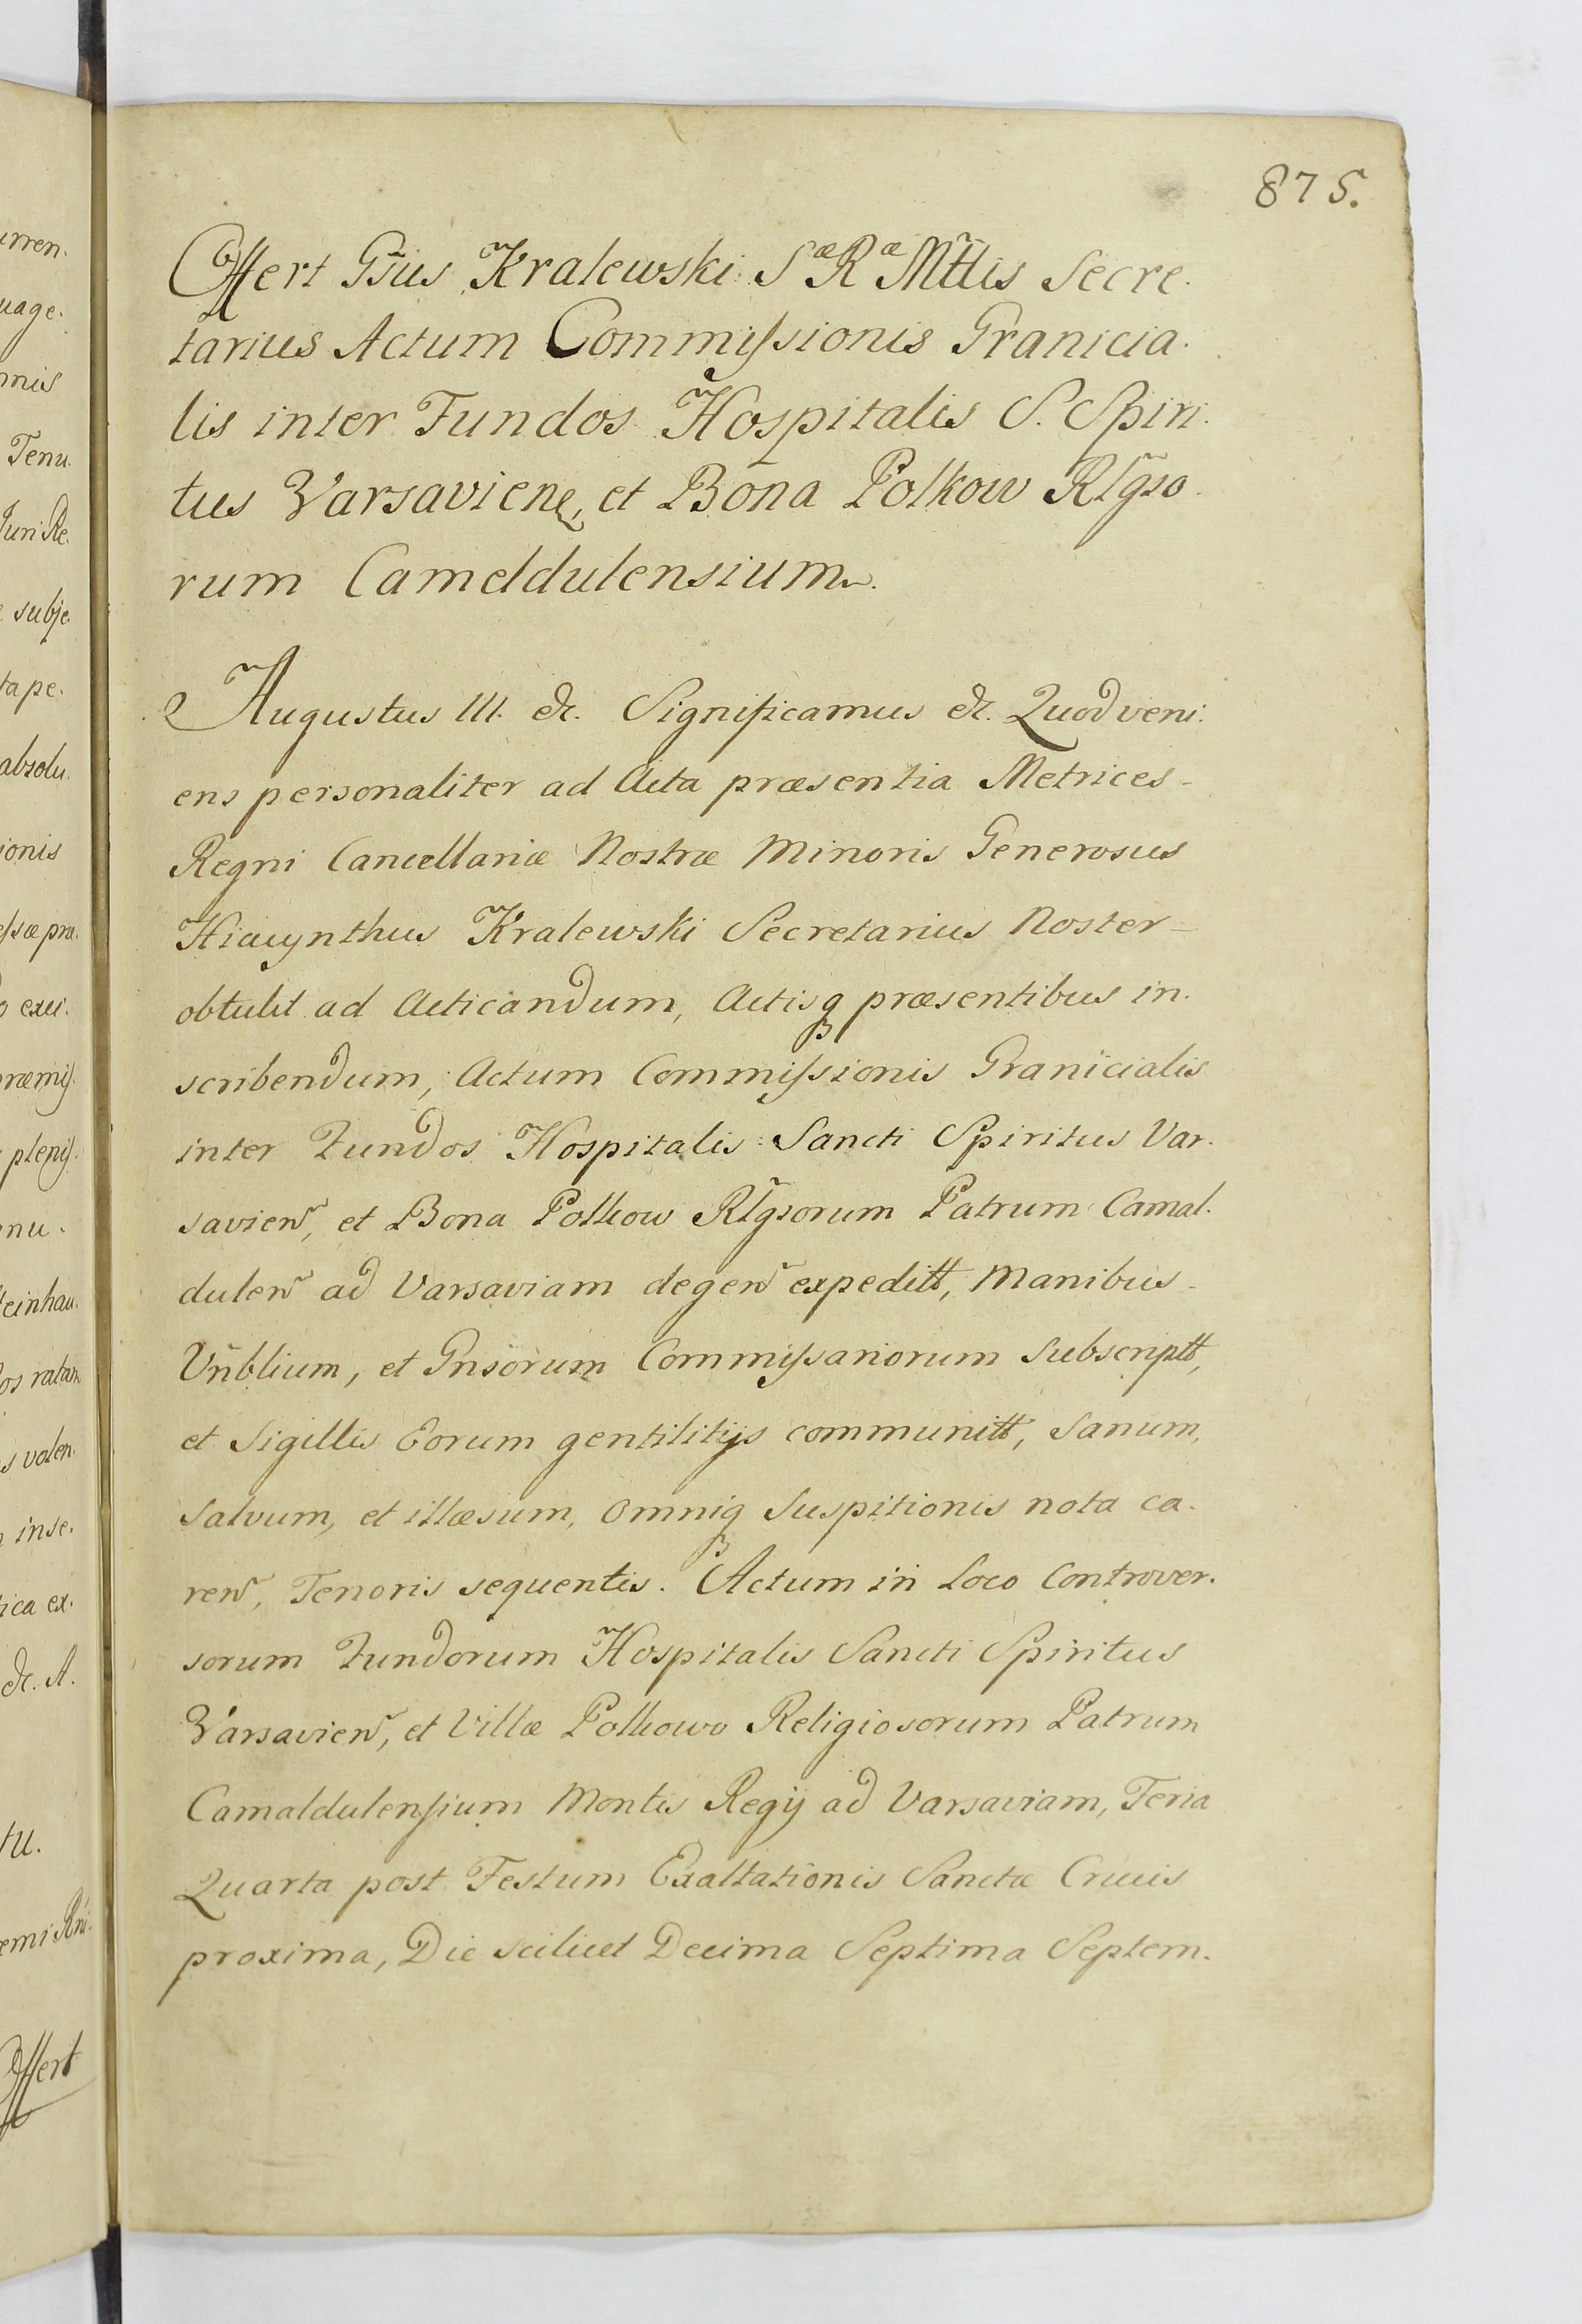 875.
Offert Gsus Kralewski SæRæ Mttis Secre.
tarius Actum Commissionis Granicia.
lis inter Fundos Hospitalis S. Spiri.
tus Varsaviens, et Bona Polkow Rlgso.
rum Cameldulensium.
Augustus III. &c. Significamus &c. Quod veni.
ens personaliter ad Acta præsentia Metrices-
Regni Cancellariæ Nostræ Minoris Generosus
Hiacynthus Kralewski Secretarius Noster-
obtulit ad Acticandum, Actisq præsentibus in.
scribendum, Actum Commissionis Granicialis
inter Fundos Hospitalis Sancti Spiritus Var.
savien, et Bona Polkow Rlgsorum Patrum Camal.
dulen ad Varsaviam degen expeditt, Manibus-
Vnblium, et Gnsorum Commissariorum Subscriptt,
et Sigillis Eorum gentilitijs communitt, Sanum,
Salvum, et illæsum, Omniq Suspitionis nota ca.
ren, Tenoris sequentis. Actum in Loco Controver.
sorum Fundorum Hospitalis Sancti Spiritus
Varsavien, et Villæ Polkowo Religiosorum Patrum
Camaldulensium Montis Regij ad Varsaviam, Feria
Quarta post Festum Exaltationis Sanctæ Crucis
proxima, Die scilicet Decima Septima Septem.
urren.
uage.
mnis
Tenu.
Juri Re.
subje.
tape.
absolu.
ionis
essæ præ.
exci.
ræmis.
plenis.
nu.
einhau.
os ratam
s volen.
inse.
ica ex.
&c. A.
tu.
Offert